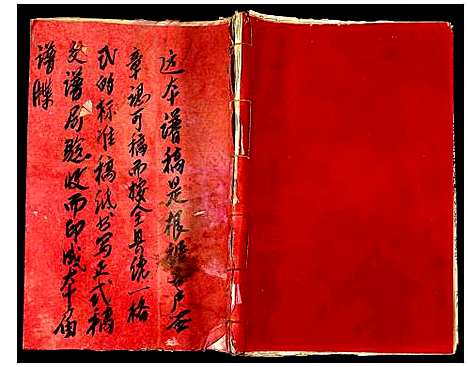 这本谱稿是根据各户石
章认可稿而按全县统一格
式的标准稿纸书写正式稿
交谱局验收而印成本届
谱牒